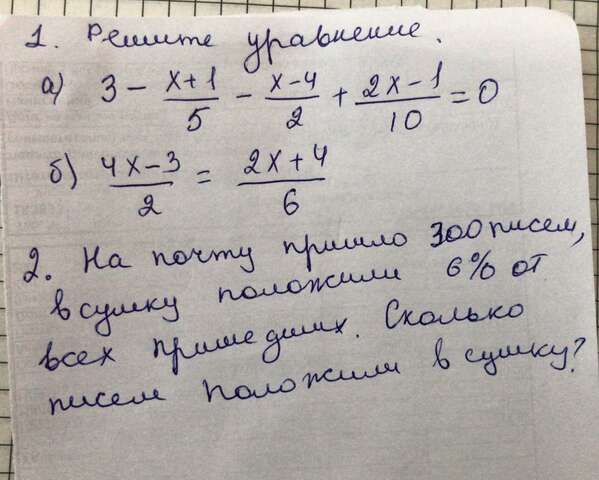 1. Решите уравнение.
а) 3 - (x+1)/5 - (x-4)/2 + (2x-1)/10 = 0
б) (4x-3)/2 = (2x+4)/6
2. На почту пришло 300 писем,
в сумку положили 6% от
всех пришедших. Сколько
писем положили в сумку?